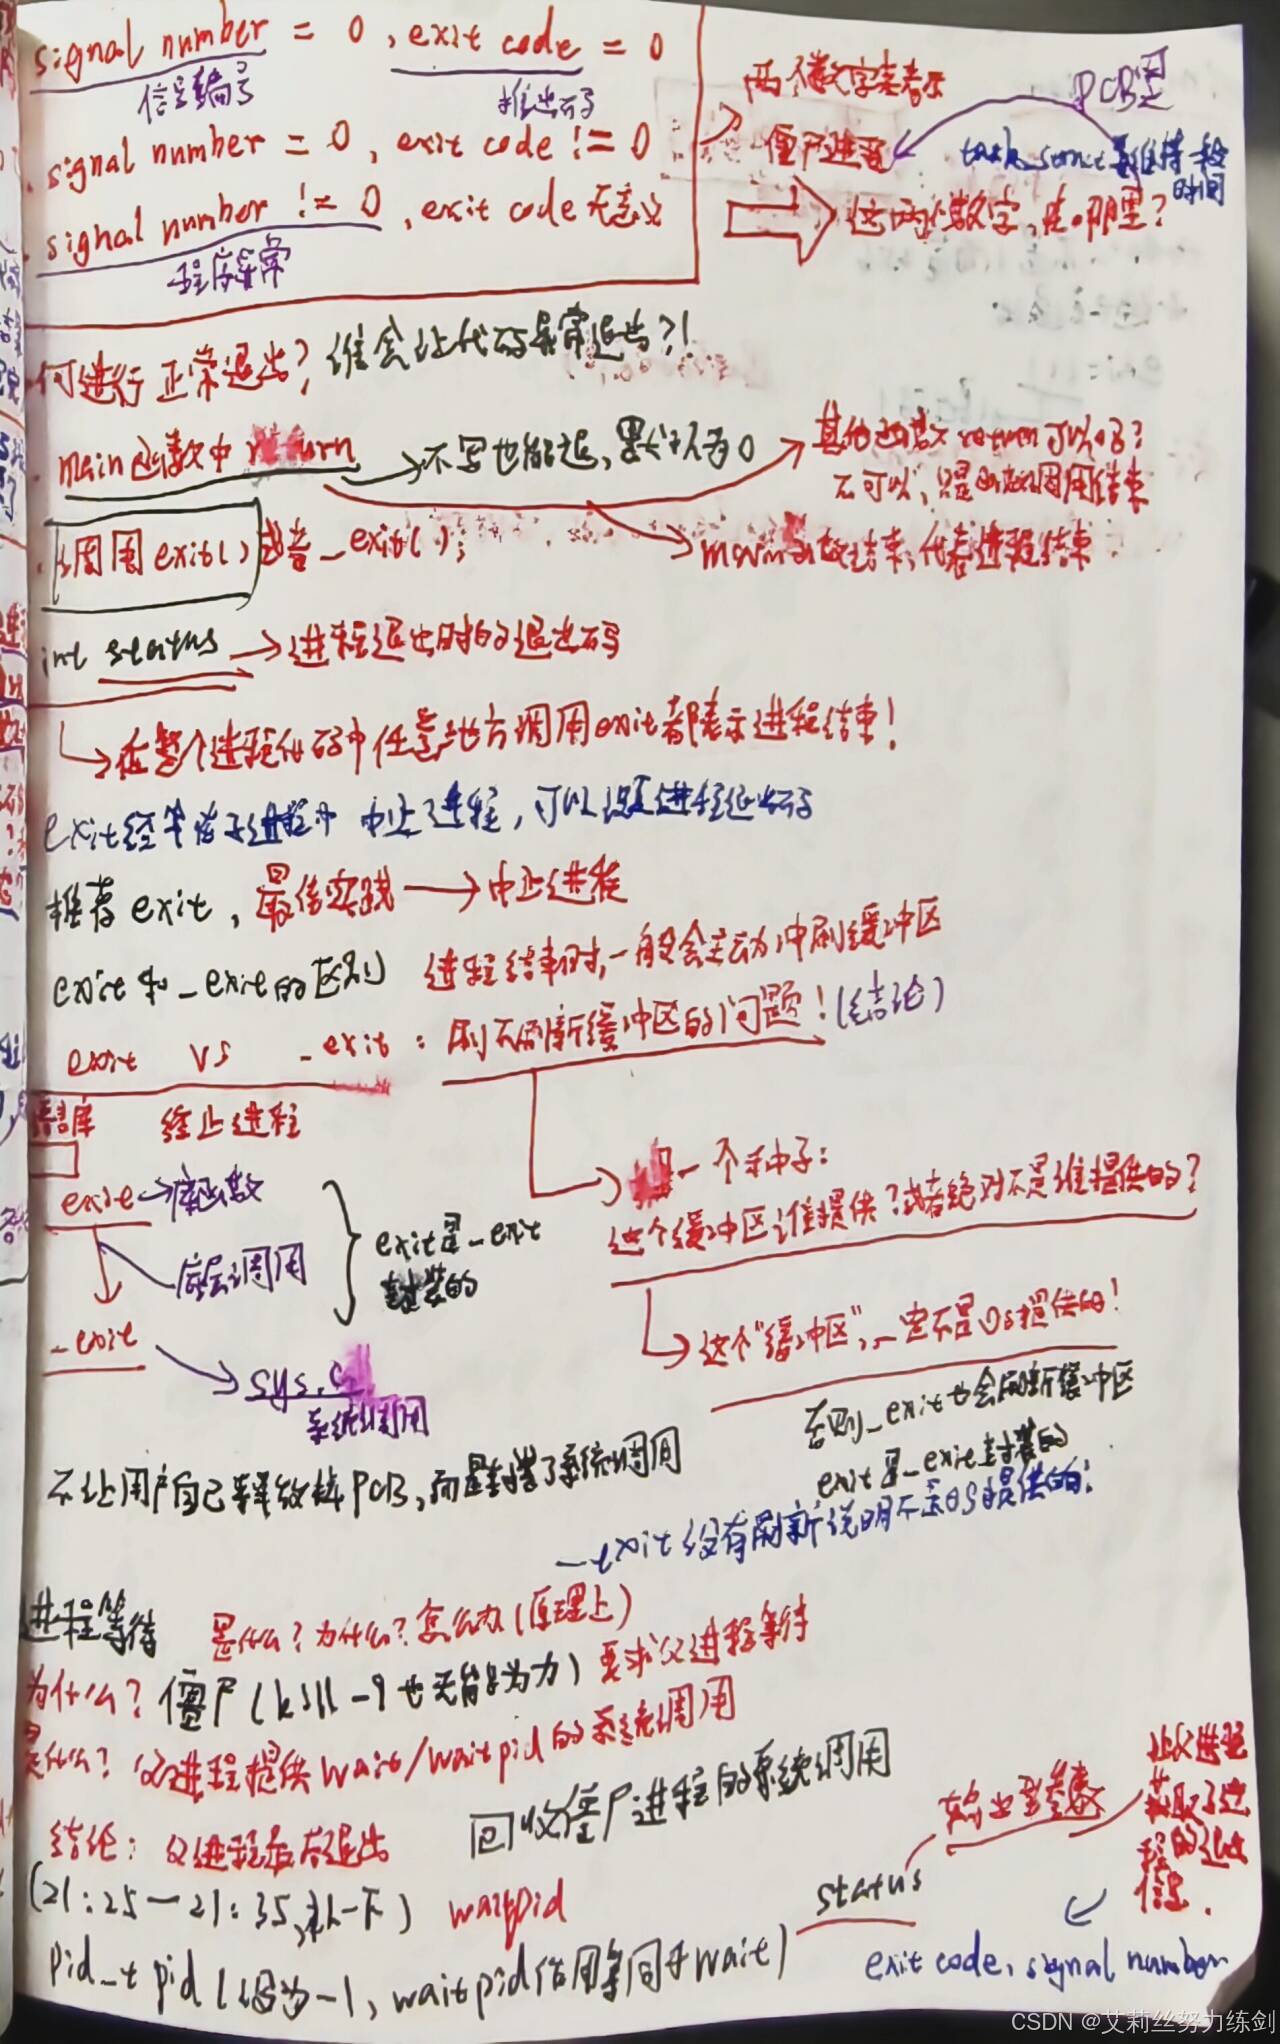 signal number = 0 , exit code = 0
信号编号 推出码
两个数字来表示
PCB里
signal number = 0 , exit code != 0
僵尸进程
task_struct要维持一段时间
signal number != 0 , exit code 无意义
程序异常
这两个数字,在哪里?
何进行正常退出? 谁会让代码异常退出?!
main函数中 return 不写也能退,默认为0
其他函数return可以吗?
不可以,只是函数调用结束
调用exit() 或者_exit();
main函数结束,代表进程结束
int status → 进程退出时的退出码
在整个进程代码中任意地方调用exit都表示进程结束!
exit 中止进程,可以设定进程退出码
推荐exit,最佳实践 → 中止进程
exit和_exit的区别 进程结束时,一般会主动冲刷缓冲区
exit vs _exit : 刷不刷新缓冲区的问题!(结论)
语言库 终止进程
一个种子:
这个缓冲区谁提供?或者绝对不是谁提供的?
exit → 库函数
底层调用
exit是_exit
封装的
_exit
sys.call
系统调用
这个"缓冲区",一定不是OS提供的!
否则_exit也会刷新缓冲区
exit是_exit封装的
不让用户自己释放掉PCB,而是封装了系统调用
_exit没有刷新说明不是OS提供的!
进程等待 是什么?为什么?怎么办(原理上)
为什么?僵尸(kill -9也无能为力)要求父进程等待
是什么?父进程提供wait/waitpid的系统调用
回收僵尸进程的系统调用
结论:父进程最后退出
输出型参数
让父进程
获取子进
程的退出
信息.
(21:25—21:35,补一下) waitpid
status
pid_t pid(设为-1,waitpid作用等同于wait)
exit code, signal number
CSDN @艾莉丝努力练剑